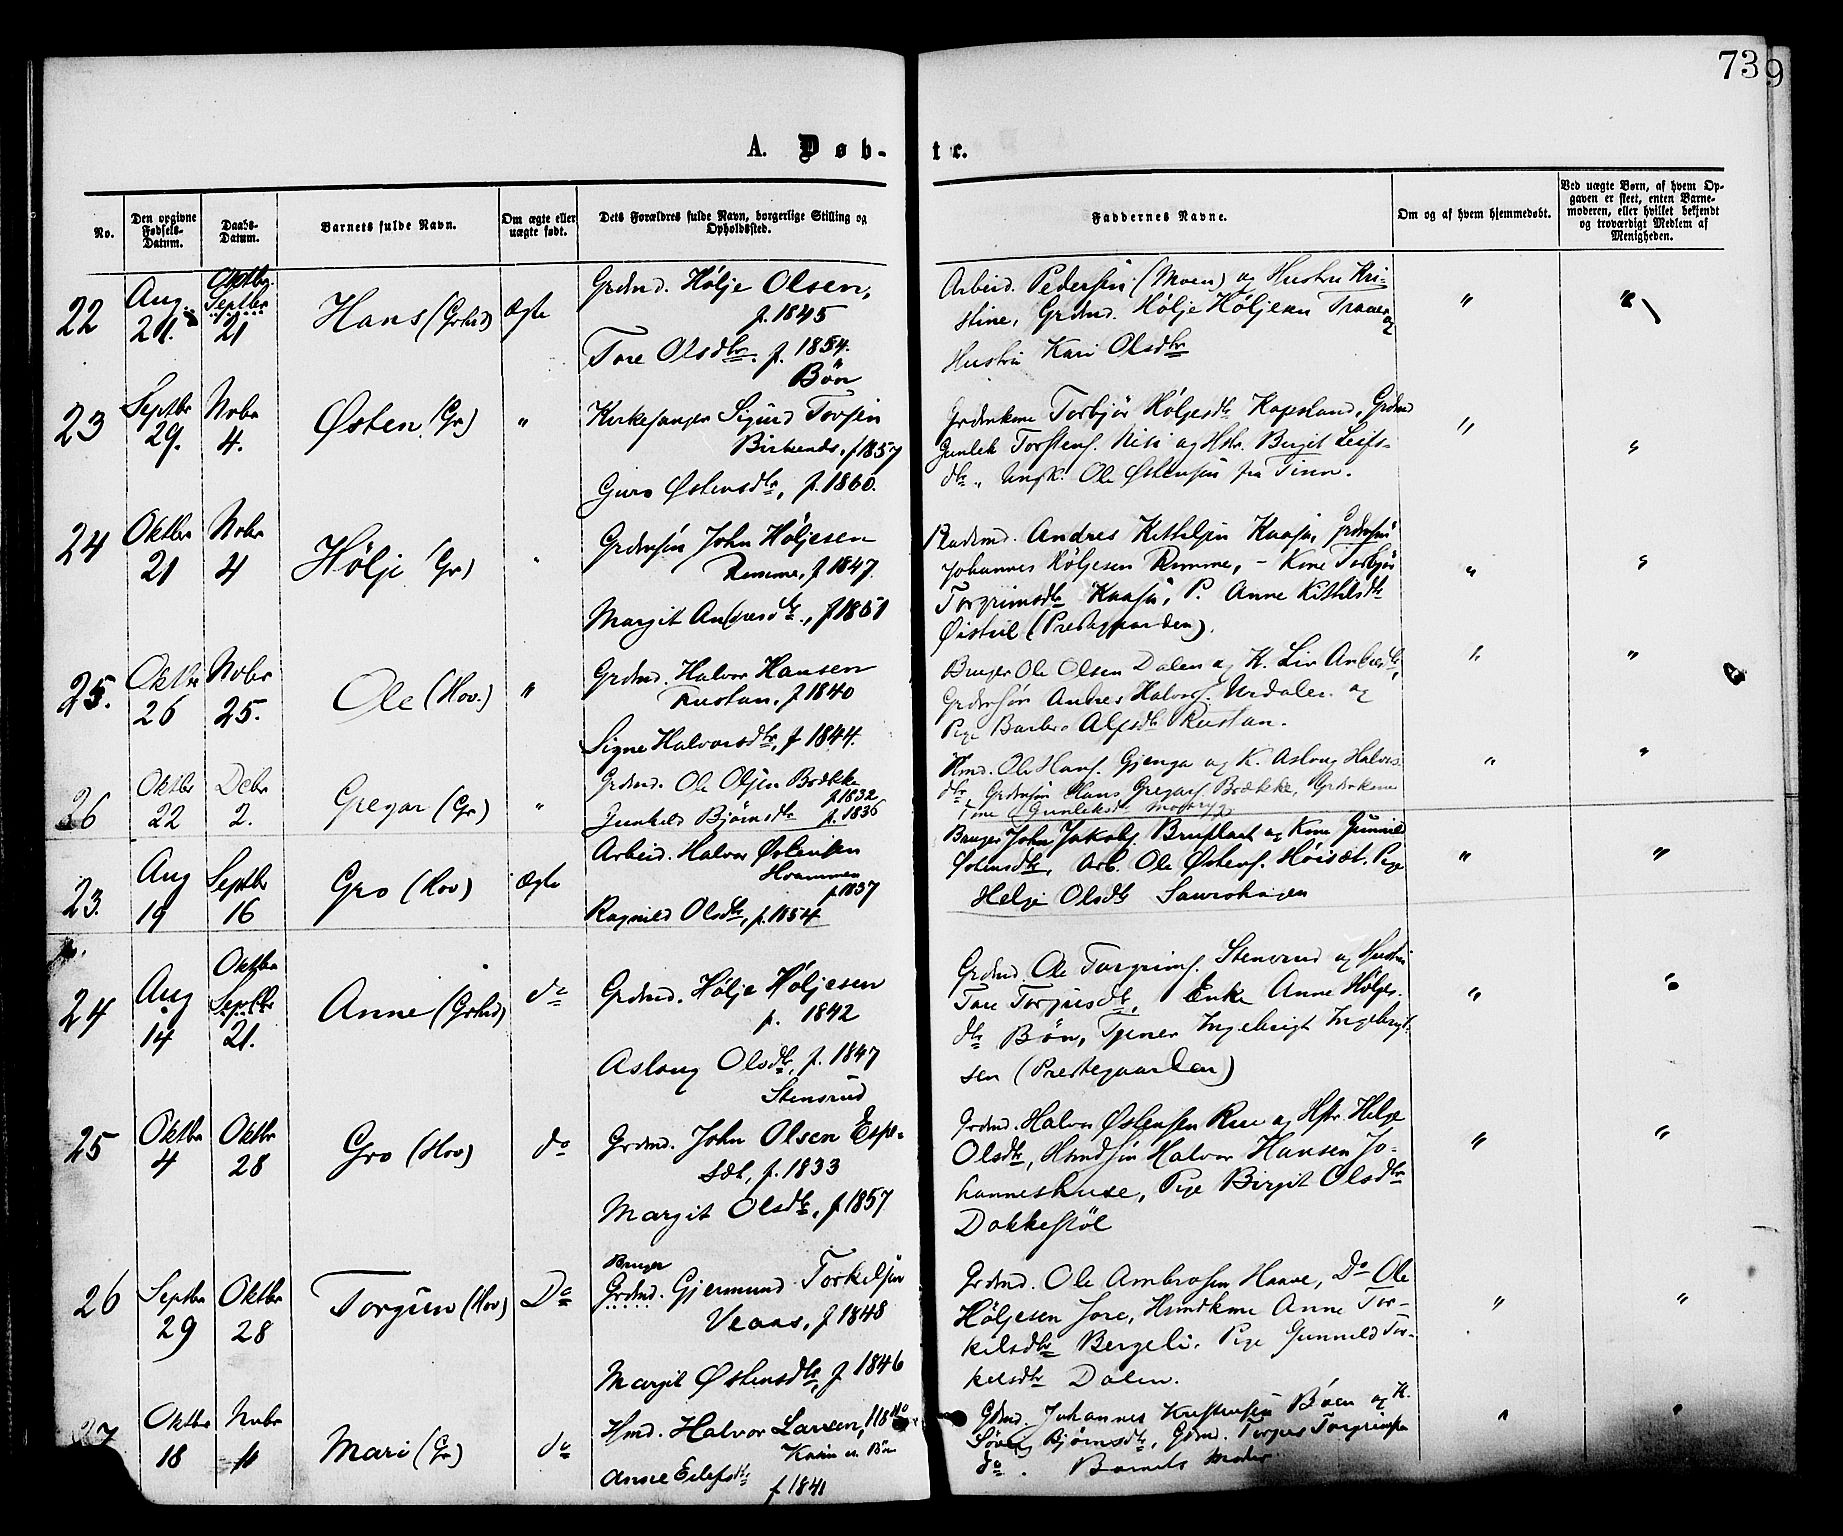 73
9
A. Døb-
te.
No.
Den opgivne
Fødsels-
Datum.
Daabs-
Datum.
Barnets fulde Navn.
Om ægte eller
uægte født.
Dets Forældres fulde Navn, borgerlige Stilling og
Opholdssted.
Faddernes Navne.
Om og af hvem hjemmedøbt.
Ved uægte Børn, af hvem Op-
gaven er skeet, enten Barne-
moderen, eller hvilket bekjendt
og troværdigt Medlem af
Menigheden.
22
Aug
21.
Oktbr
Septbr
21
Hans (Grhd)
Ægte
Grdmd. Hølje Olsen,
f. 1845
Tore Olsdtr. f. 1854.
Bön
Arbeid. Pedersen (Moen) og Hustru Kri-
stine, Grdmd. Hølje Høljesen Traaen og
Hustru Kari Olsdtr
" "
23
Septbr
29.
Nobr
4.
Østen (Gr)
"
Kirkesanger Sigurd Tovsen
Birkends, f 1857
Guro Østensdtr, f. 1860.
Grdmkone Torbjør Høljesdtr Kopsland, Grdmd
Gunlek Torstens. Nisi og Hstr. Birgit Leifs-
dtr, Ungk. Ole Østensen fra Tinn.
" "
24
Oktbr
21
Nobr
4
Hölje (Gr)
"
Grdmsön John Höljesen
Rimme, f 1847.
Margit Andresdtr., f 1851
Andres Kittilsen Kaasa, Grdmsön
Johannes Höljesen Rimme, - Kone Torbjör
Torgrimsdtr Kaasa, P. Anne Kittilsdtr
Øistul (Prestegaarden).
" "
25.
Oktbr
26
Nobr
25.
Ole (Hov.)
"
Grdmd. Halvor Hansen
Rustan, f 1840
Signe Halvorsdtr, f 1844.
Bruger Ole Olsen Dalen og K. Liv
Grdmsön Andres Halvors. Urdalen og
Pige Barbro Alfsdtr Rustan.
" "
26
Oktbr
22
Debr
2.
Gregar (Gr)
"
Grdmd. Ole Olsen Brække
f 1832
Gunhild Björnsdtr f. 1836
Hmd. Ole Hans. Gjenga og K. Aslaug Halvors
dtr Grdmsön Hans Gregars. Brække, Grdmkone
Gunleksdtr
" "
23.
Aug
19
Septbr
16
Gro (Hov)
Ægte
Arbeid. Halvor Østensen
Hvammen
f. 1837
Ragnild Olsdtr, f. 1854
Bruger John Jakobs. Brusland og Kone Gunnild
Østensdtr, Arb. Ole Østens. Höisæt. Pige
Helje Olsdtr Saurohagen
" "
24
Aug
14
Oktbr
Septbr
21.
Anne (Grhd)
do
Grdmd. Hölje Höljesen
f. 1842
Aslaug Olsdtr, f. 1847
Stensrud
Grdmd. Ole Torgrims. Stensrud og Hustru
Tore Torjusdtr, Enke Anne Höljes-
dtr Bön, Tjener Ingebrigt Ingebrigt-
sen (Prestegaarden)
" "
25
Oktbr
4
Oktbr
28
Gro (Hov)
do
Grdmd. John Olsen Espe-
sæt, f. 1833
Margit Olsdtr, f 1857
Grdmd. Halvor Østensen Rue og Hstr. Helge
Olsdtr, Hsmdsön Halvor Hansen Jo-
hanneshuse, Pige Birgit Olsdtr
Dokkestöl
" "
26
Septbr
29
Oktbr
28
Torgun (Hov)
Do
Bruger
Grdmd. Gjermund Torkilsen
Veaas, f 1848
Margit Østensdtr, f 1846
Grdmd. Ole Ambrosen Haave, Do Ole
Höljesen Jore, Hsmdkone Anne Tor-
kilsdtr Bergeli. Pige Gunnild Tor-
kelsdtr Dalen.
" "
27
Oktbr
18
Nobr
11
Mari (Gr)
do
Hmd. Halvor Larsen, f 1840
u. Bön
Anne Eilefsdtr
f 1841
Grdmd. Johannes Kristensen Böen og K.
Björnsdtr, Grdmd. Torjus Torgrimsen
do. Barnets Moder.
" "